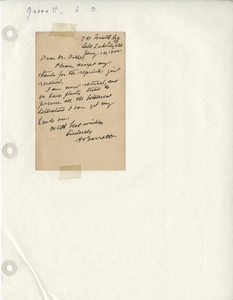 Garrett, A O
791 Ninth Ave
Salt Lake City, Utah
Jany. 10, 1944
Dear Mr. Diehl:
Please accept my
thanks for the reprints, just
received.
I am now retired, but
as busy
peruse all the botanical
literature I can get my
hands on.
With best wishes
Sincerely
A O Garrett